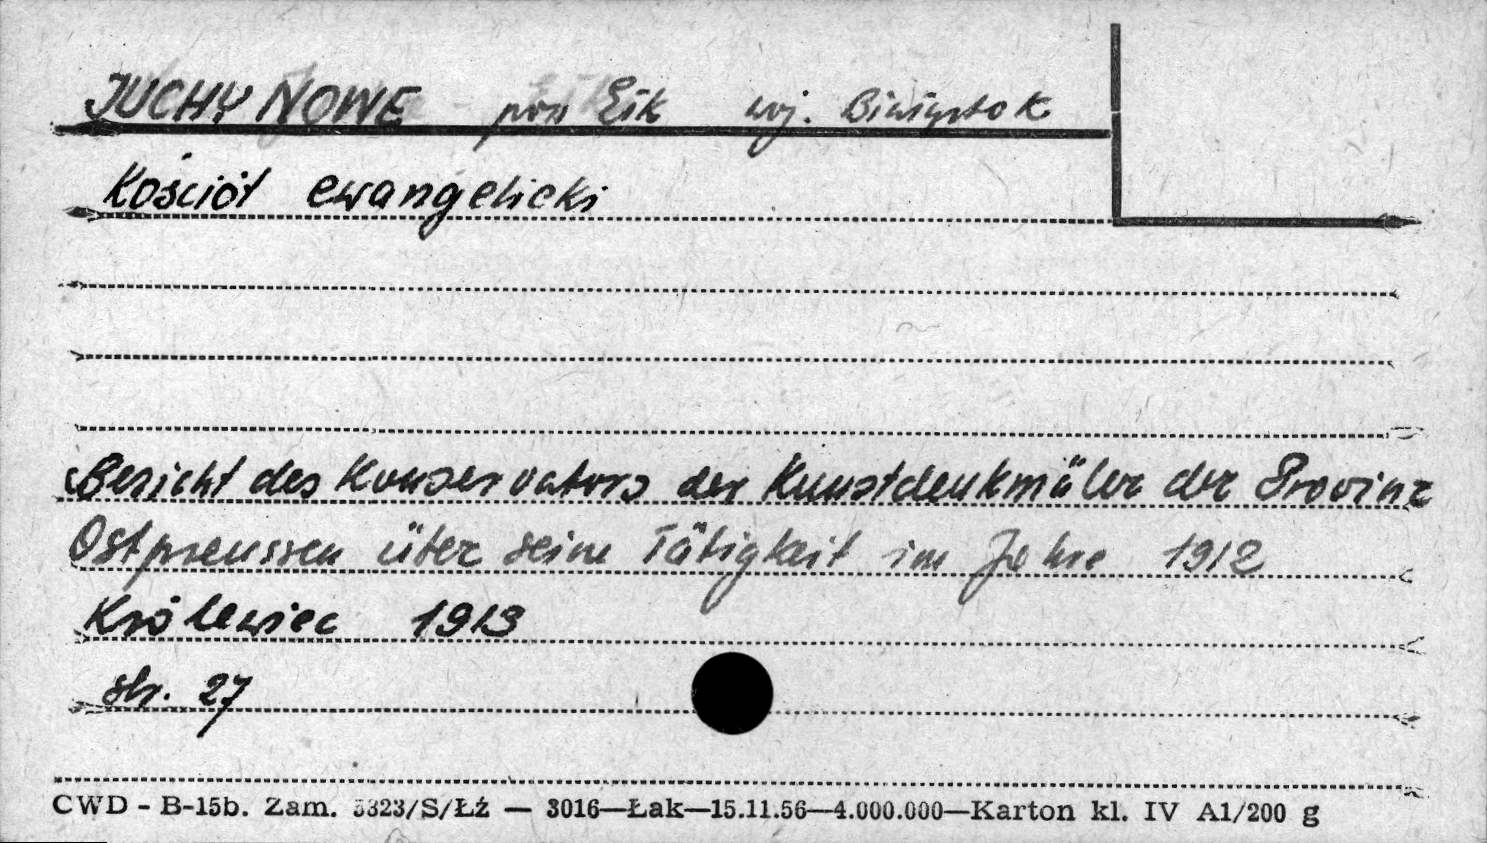 JUCHY NOWE pow Ełk woj. Białystok
Kościół ewangelicki
Bericht des Konservators der Kunstdenkmäler der Provinz
Ostpreussen über seine Tätigkeit im Jahre 1912
Królewiec 1913
str. 27
CWD - B-15b. Zam. 5323/S/Łź — 3016—Łak—15.11.56—4.000.000—Karton kl. IV A1/200 g